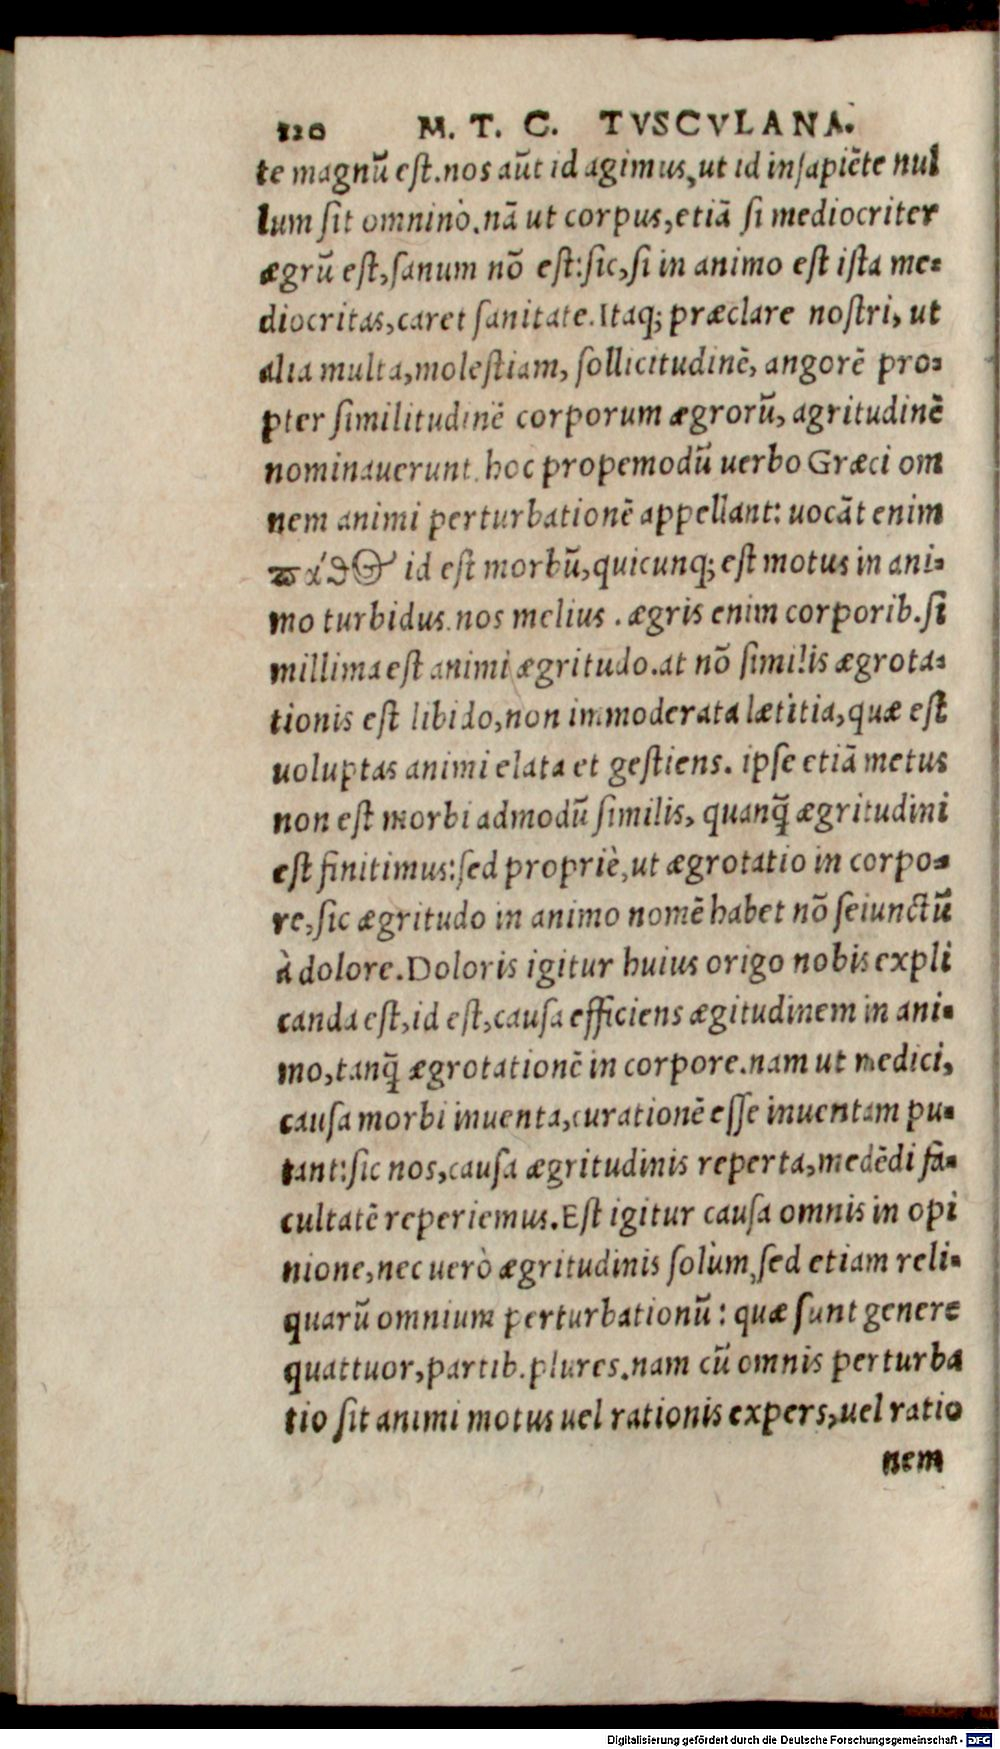 120 M. T. C. TVSCVLANA.
te magnũ est.nos aũt id agimus,ut id in sapiẽte nul
lum sit omnino.nã ut corpus,etiã si mediocriter
ægrũ est,sanum nõ est:sic,si in animo est ista me-
diocritas,caret sanitate.Itaq; præclare nostri, ut
alia multa,molestiam, sollicitudinẽ, angorẽ pro-
pter similitudinẽ corporum ægrorũ, ægritudinẽ
nominauerunt.hoc propemodũ uerbo Græci om
nem animi perturbationẽ appellant: uocãt enim
πάθος id est morbũ,quicunq; est motus in ani-
mo turbidus.nos melius . ægris enim corporib.si
millima est animi ægritudo.at nõ similis ægrota-
tionis est libido,non immoderata lætitia,quæ est
uoluptas animi elata et gestiens. ipse etiã metus
non est morbi admodũ similis, quanq̃ ægritudini
est finitimus:sed propriè,ut ægrotatio in corpo-
re,sic ægritudo in animo nomẽ habet nõ seiunctũ
à dolore.Doloris igitur huius origo nobis expli
canda est,id est,causa efficiens ægitudinem in ani-
mo,tanq̃ ægrotationẽ in corpore.nam ut medici,
causa morbi inuenta,curationẽ esse inuentam pu-
tant:sic nos,causa ægritudinis reperta,medẽdi fa-
cultatẽ reperiemus.Est igitur causa omnis in opi
nione,nec uerò ægritudinis solùm,sed etiam reli-
quarũ omnium perturbationũ: quæ sunt genere
quattuor,partib.plures.nam cũ omnis perturba
tio sit animi motus uel rationis expers,uel ratio
nem
Digitalisierung gefördert durch die Deutsche Forschungsgemeinschaft - DFG